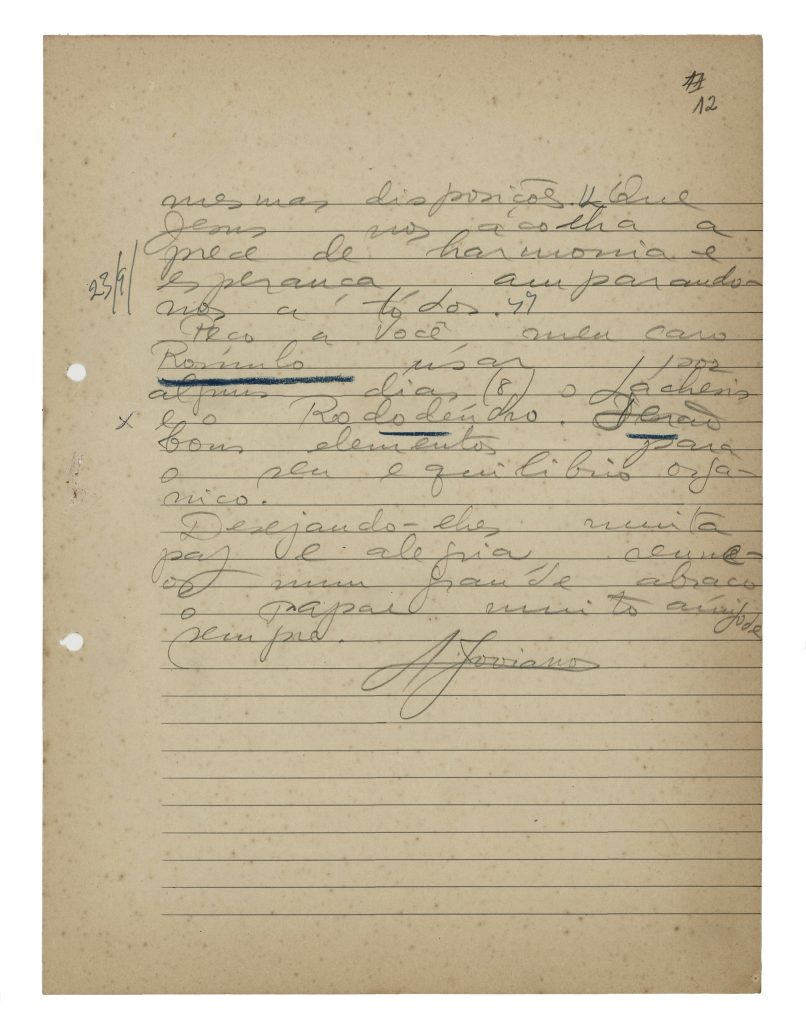 12
mesmas disposições. Que
Jesus nos acolha a
prece de harmonia e
23/9/
esperança amparando-
nos a todos."
Peço a você meu caro
Rômulo usar por
alguns dias (8) o Láchesis
x e o Rododendro. Serão
bons elementos para
o seu equilibrio orgâ-
nico.
Desejando-lhes muita
paz e alegria reune-
os num grande abraço
o Papai muito amigo de
sempre.
A. Joviano